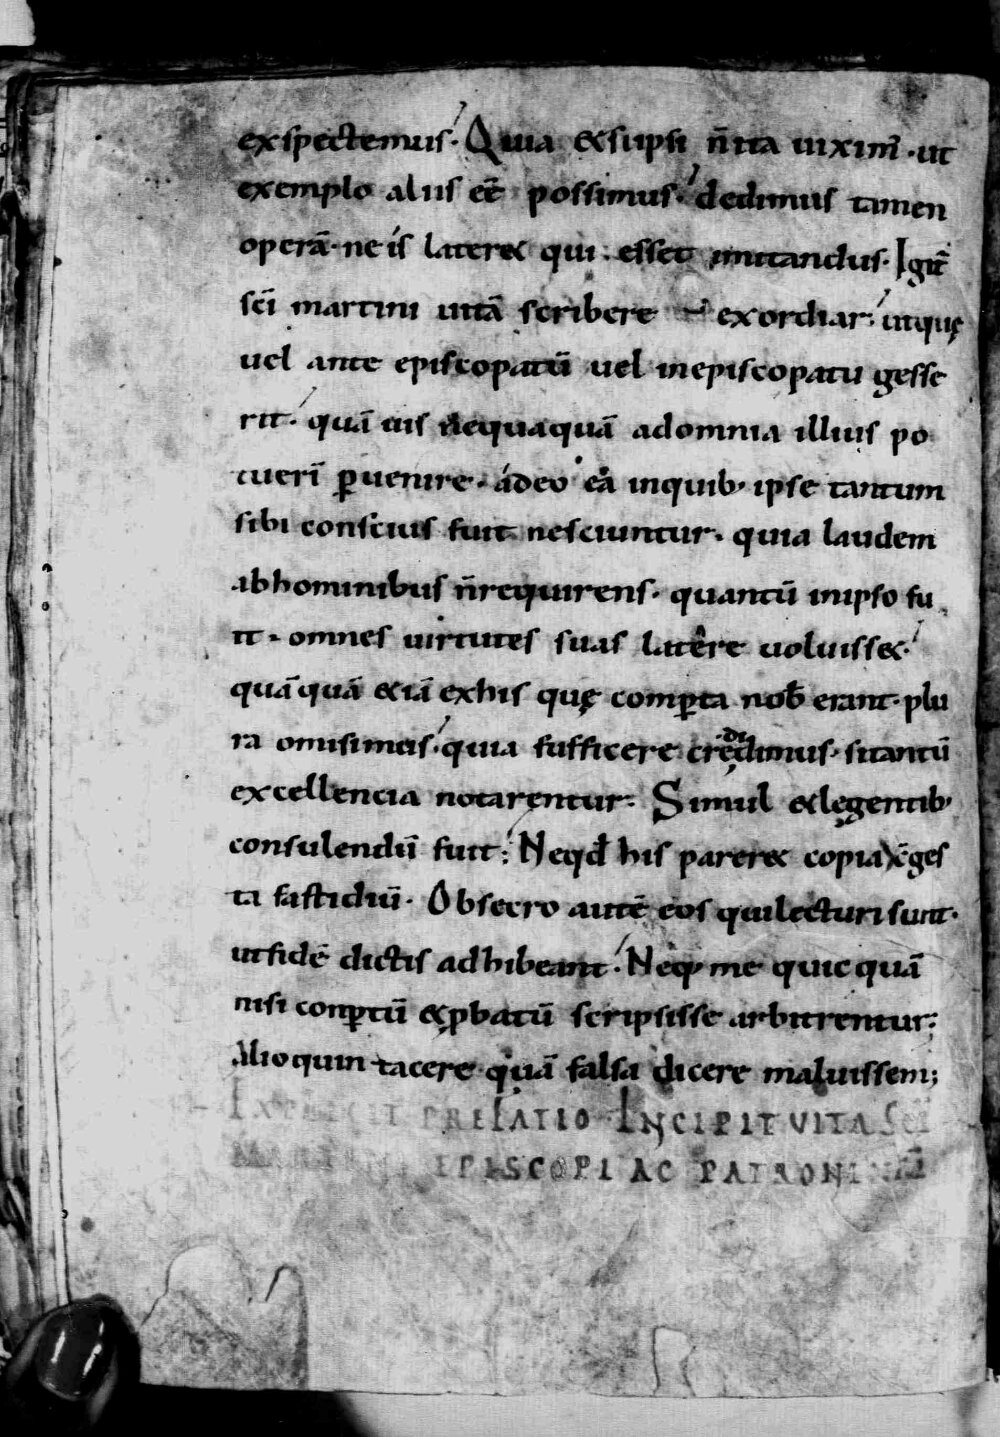 exspectemus. Quia & si ipsi n̄ ita uixim̄. ut
exemplo aliis eē possimus. dedimus tamen
operā. ne is later& qui esset imitandus. Igit̄
sc̄i martini uitā scribere exordiar. ut quę
uel ante episcopatū uel in episcopatu gesse
rit. quā uis nequaquā ad omnia illius po
tueri ꝑuenire. adeo ea in quib; ipse tantum
sibi conscius fuit nesciuntur. quia laudem
ab hominibus n̄ requirens. quantū in ipso fu
it. omnes uirtutes suas latere uoluiss&.
quāquā &iā ex his quę comꝑta nob̄ erant. plu
ra omisimus. quia sufficere credimus. si tantū
excellencia notarentur. Simul & legentib;
consulendū fuit; Ne qđ his parer& copia c̄ges
ta fastidiū. Obsecro autē eos qui lecturi sunt.
ut fidē dictis adhibeant. Neq; me quicquā
nisi conꝑtū & ꝓbatū scripsisse arbitrentur;
Alioquin tacere quā falsa dicere maluissem;
EXPLICIT PREFATIO INCIPIT VITA SC̄I
MARTINI EPISCOPI AC PATRONI